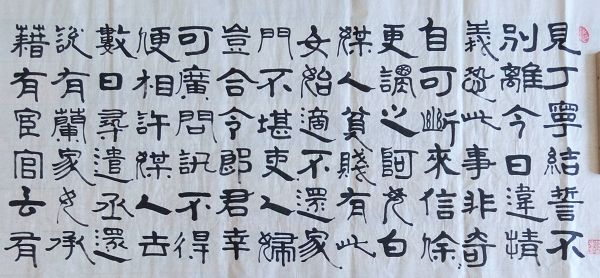 見丁寧結誓不
別離今日違情
義恐此事非奇
自可斷來信餘
更謂之阿母白
媒人貧賤有此
女始適不還家
門不堪吏人婦
豈合令郎君幸
可廣問訊不得
便相許媒人去
數日尋遣丞還
說有蘭家女承
藉有宦官云有